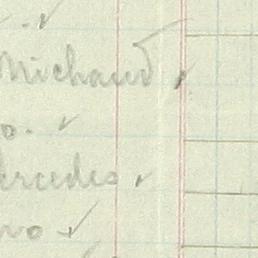 Michaud ✓
o. ✓
ercedes ✓
vo ✓